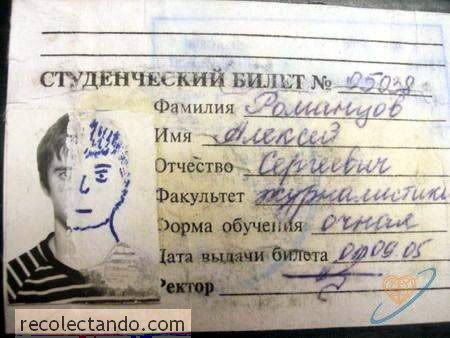 СТУДЕНЧЕСКИЙ БИЛЕТ № 05038
Фамилия Романцов
Имя Алексей
Отчество Сергеевич
Факультет журналистики
Форма обучения очная
Дата выдачи билета 01.09.05
Ректор
recolectando.com